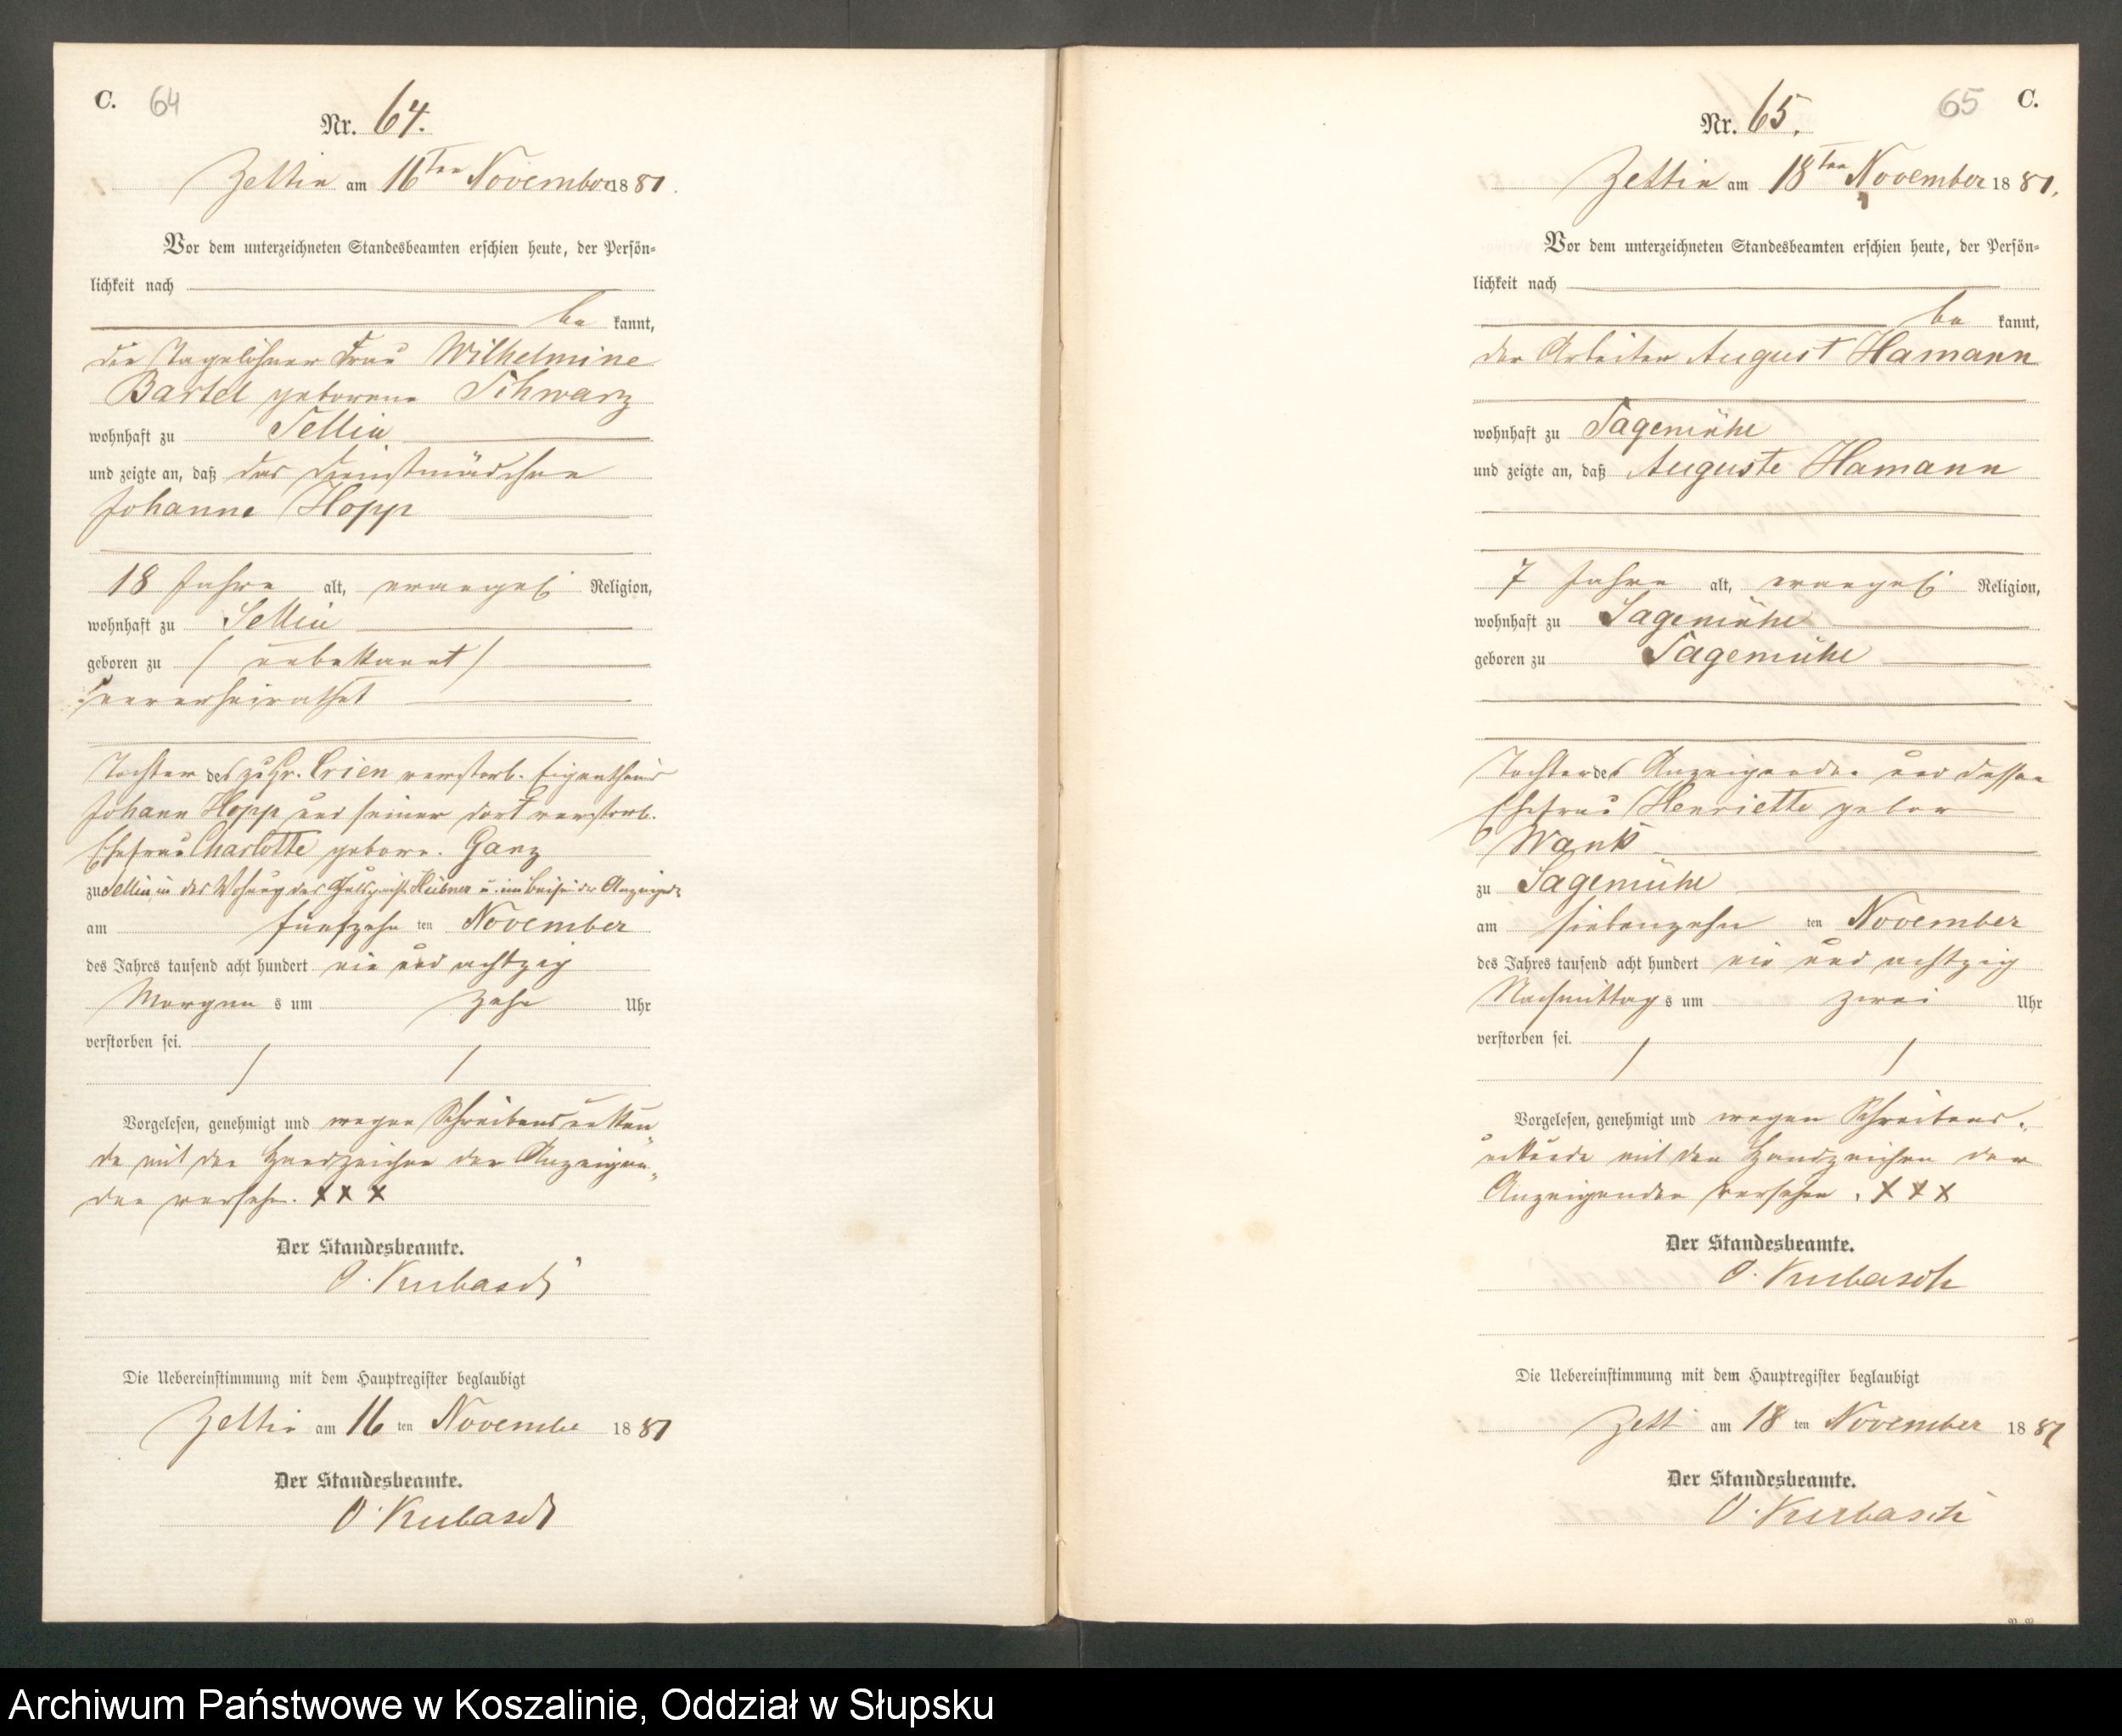 C. 64
Nr. 64.
Zettin am 16ten November 1881.
Vor dem unterzeichneten Standesbeamten erschien heute, der Persön-
lichkeit nach
be kannt,
die Tagelöhner Frau Wilhelmine
Bartel geborene Schwarz
wohnhaft zu Sellin
und zeigte an, daß das Dienstmädchen
Johanne Hopp
18 Jahre alt, evangel. Religion,
wohnhaft zu Sellin
geboren zu / unbekannt /
unverheirathet
Tochter des zu Gr. Crien verstorb. Eigenthüm.
Johann Hopp und seiner dort verstorb.
Ehefrau Charlotte gebore. Ganz
zu Sellin, in der Wohnung des Hübner u. im Beisein der Anzeigend.
am fünfzehn ten November
des Jahres tausend acht hundert ein und achtzig
Morgen s um zehn Uhr
verstorben sei.
Vorgelesen, genehmigt und wegen Schreibensunkun
de mit den Handzeichen der Anzeigen-
den versehen. XXX
Der Standesbeamte.
O. Kubasch
Die Uebereinstimmung mit dem Hauptregister beglaubigt
Zettin am 16 ten Novembe 1881
Der Standesbeamte.
O. Kubasch
65 C.
Nr. 65.
Zettin am 18ten November 1881.
Vor dem unterzeichneten Standesbeamten erschien heute, der Persön-
lichkeit nach
be kannt,
der Arbeiter August Hamann
wohnhaft zu Sagemühe
und zeigte an, daß Auguste Hamann
7 Jahre alt, evangel. Religion,
wohnhaft zu Sagemühe
geboren zu Sagemühe
Tochter des Anzeigenden und dessen
Ehefrau Henriette gebor
Wank
zu Sagemühe
am siebenzehn ten November
des Jahres tausend acht hundert ein und achtzig
Nachmittag s um zwei Uhr
verstorben sei.
Vorgelesen, genehmigt und wegen Schreibens-
unkunde mit den Handzeichen des
Anzeigenden versehen. XXX
Der Standesbeamte.
O. Kubasch
Die Uebereinstimmung mit dem Hauptregister beglaubigt
Zett am 18 ten November 1881
Der Standesbeamte.
O. Kubasch
Archiwum Państwowe w Koszalinie, Oddział w Słupsku